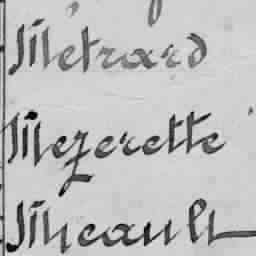 Métrard
Mezerette
Micault